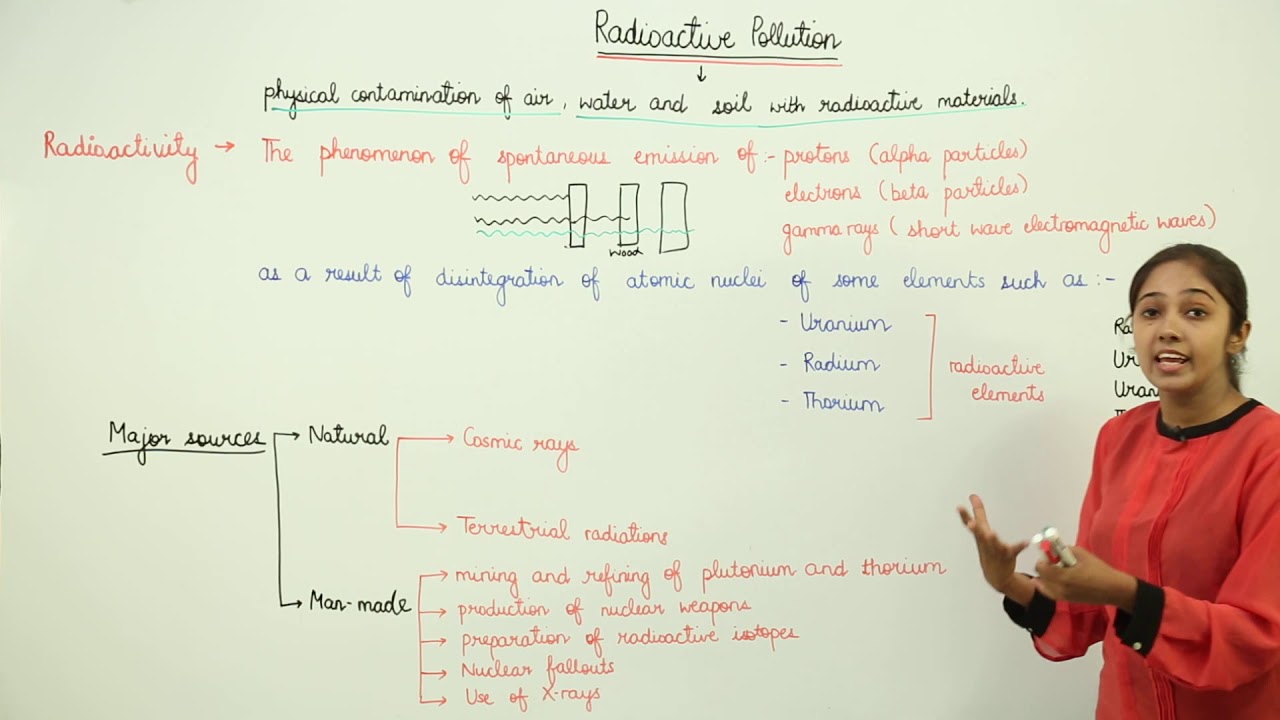 Radioactive Pollution
↓
physical contamination of air, water and soil with radioactive materials.
Radioactivity → The phenomenon of spontaneous emission of :- protons (alpha particles)
electrons (beta particles)
gamma rays (short wave electromagnetic waves)
wood
as a result of disintegration of atomic nuclei of some elements such as :-
- Uranium
- Radium
- Thorium
radioactive
elements
Major sources → Natural → Cosmic rays
→ Terrestrial radiations
→ Man-made → mining and refining of plutonium and thorium
→ production of nuclear weapons
→ preparation of radioactive isotopes
→ Nuclear fallouts
→ Use of X-rays